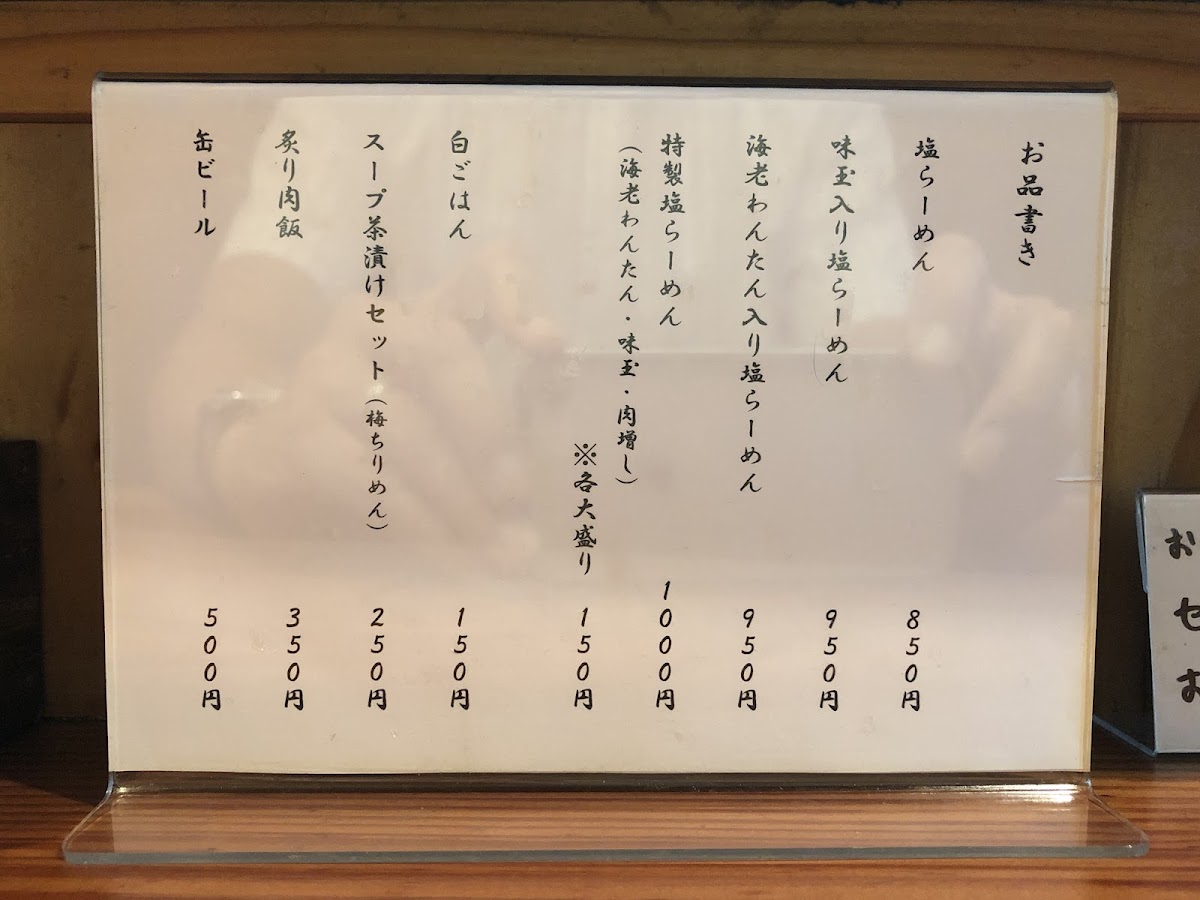 お品書き
塩らーめん 850円
味玉入り塩らーめん 950円
海老わんたん入り塩らーめん 950円
特製塩らーめん 1000円
(海老わんたん・味玉・肉増し)
※各大盛り 150円
白ごはん 150円
スープ茶漬けセット(梅ちりめん) 250円
炙り肉飯 350円
缶ビール 500円
お
セ
お